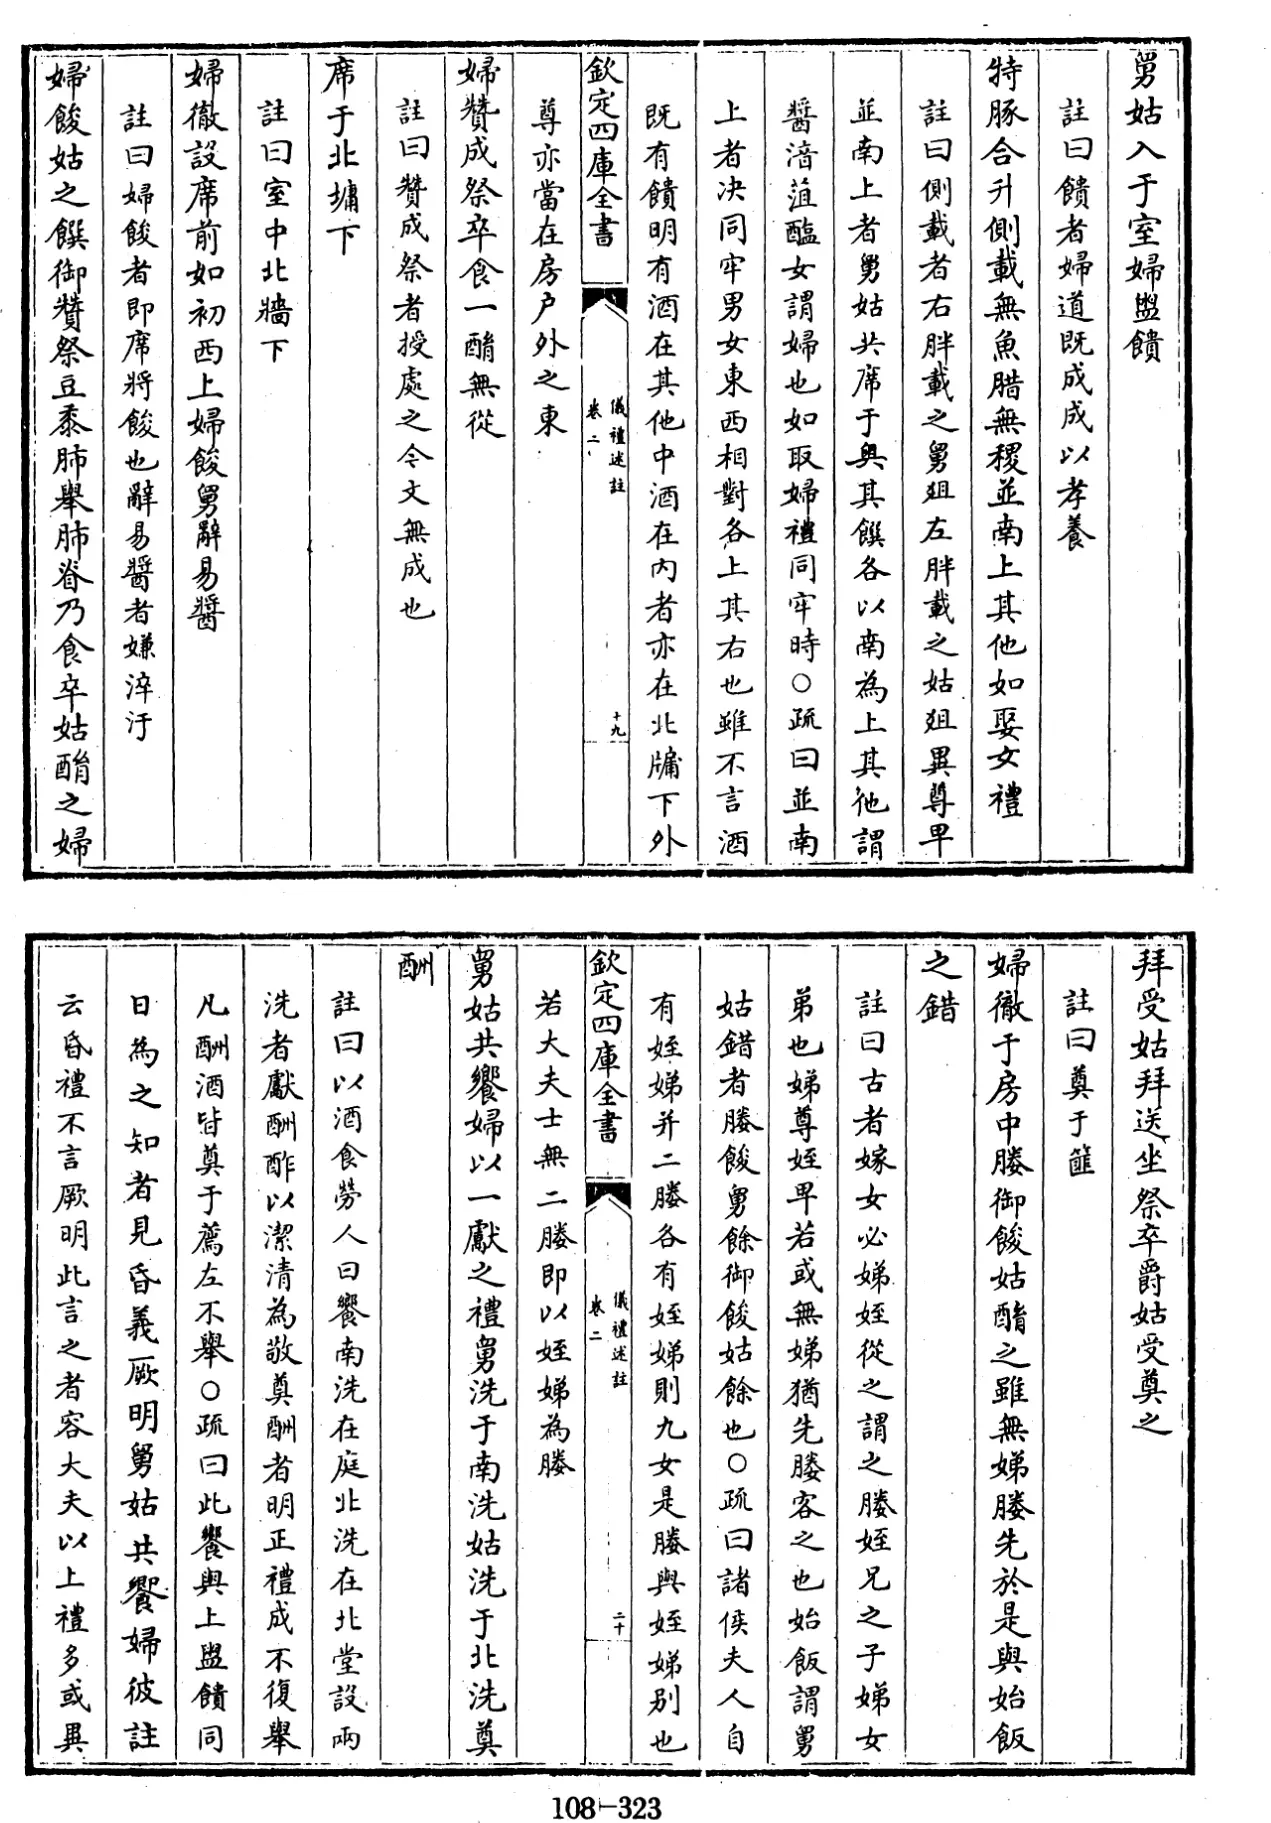 舅姑入于室婦盥饋
註曰饋者婦道既成成以孝養
特豚合升側載無魚腊無稷並南上其他如娶女禮
註曰側載者右胖載之舅俎左胖載之姑俎異尊卑
並南上者舅姑共席于奥其饌各以南為上其他謂
醬湆菹醢女謂婦也如取婦禮同牢時○疏曰並南
上者决同牢男女東西相對各上其右也雖不言酒
既有饋明有酒在其他中酒在内者亦在北牖下外
欽定四庫全書
儀禮述註
卷二
十九
尊亦當在房户外之東
婦贊成祭卒食一酳無從
註曰贊成祭者授處之今文無成也
席于北墉下
註曰室中北牆下
婦徹設席前如初西上婦餕舅辭易醬
註曰婦餕者即席將餕也辭易醬者嫌淬汙
婦餕姑之饌御贊祭豆黍肺舉肺脊乃食卒姑酳之婦
拜受姑拜送坐祭卒爵姑受奠之
註曰奠于篚
婦徹于房中媵御餕姑酳之雖無娣媵先於是與始飯
之錯
註曰古者嫁女必娣姪從之謂之媵姪兄之子娣女
弟也娣尊姪卑若或無娣猶先媵客之也始飯謂舅
姑錯者媵餕舅餘御餕姑餘也○疏曰諸侯夫人自
有姪娣并二媵各有姪娣則九女是媵與姪娣别也
欽定四庫全書
儀禮述註
卷二
二十
若大夫士無二媵即以姪娣為媵
舅姑共饗婦以一獻之禮舅洗于南洗姑洗于北洗奠
酬
註曰以酒食勞人曰饗南洗在庭北洗在北堂設兩
洗者獻酬酢以潔清為敬奠酬者明正禮成不復舉
凡酬酒皆奠于薦左不舉○疏曰此饗與上盥饋同
日為之知者見昏義厥明舅姑共饗婦彼註
云昏禮不言厥明此言之者容大夫以上禮多或異
108-323